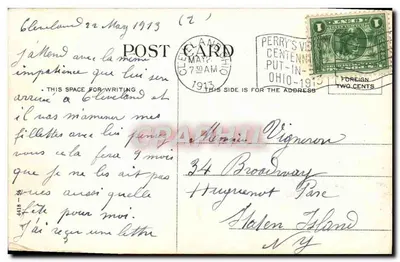 Cleveland 22 May 1913 (2)
POST CARD
THIS SPACE FOR WRITING
THIS SIDE IS FOR THE ADDRESS
CLEVELAND, OHIO
MAY
7 30 AM
1913
PERRY'S
CENTENN
PUT-IN-
OHIO-1913
1
1
FOREIGN
TWO CENTS
J'attend avec la même
impatience que lui son
arrivée à Cleveland et
il va m'amener mes
fillettes avec lui
vous cela fera 9 mois
que je ne les ait pas
vues aussi quelle
fête pour moi.
J'ai reçu une lettre
Monsieur Vigneron
34 Broadway
Huguenot Parc
Staten Island
NY